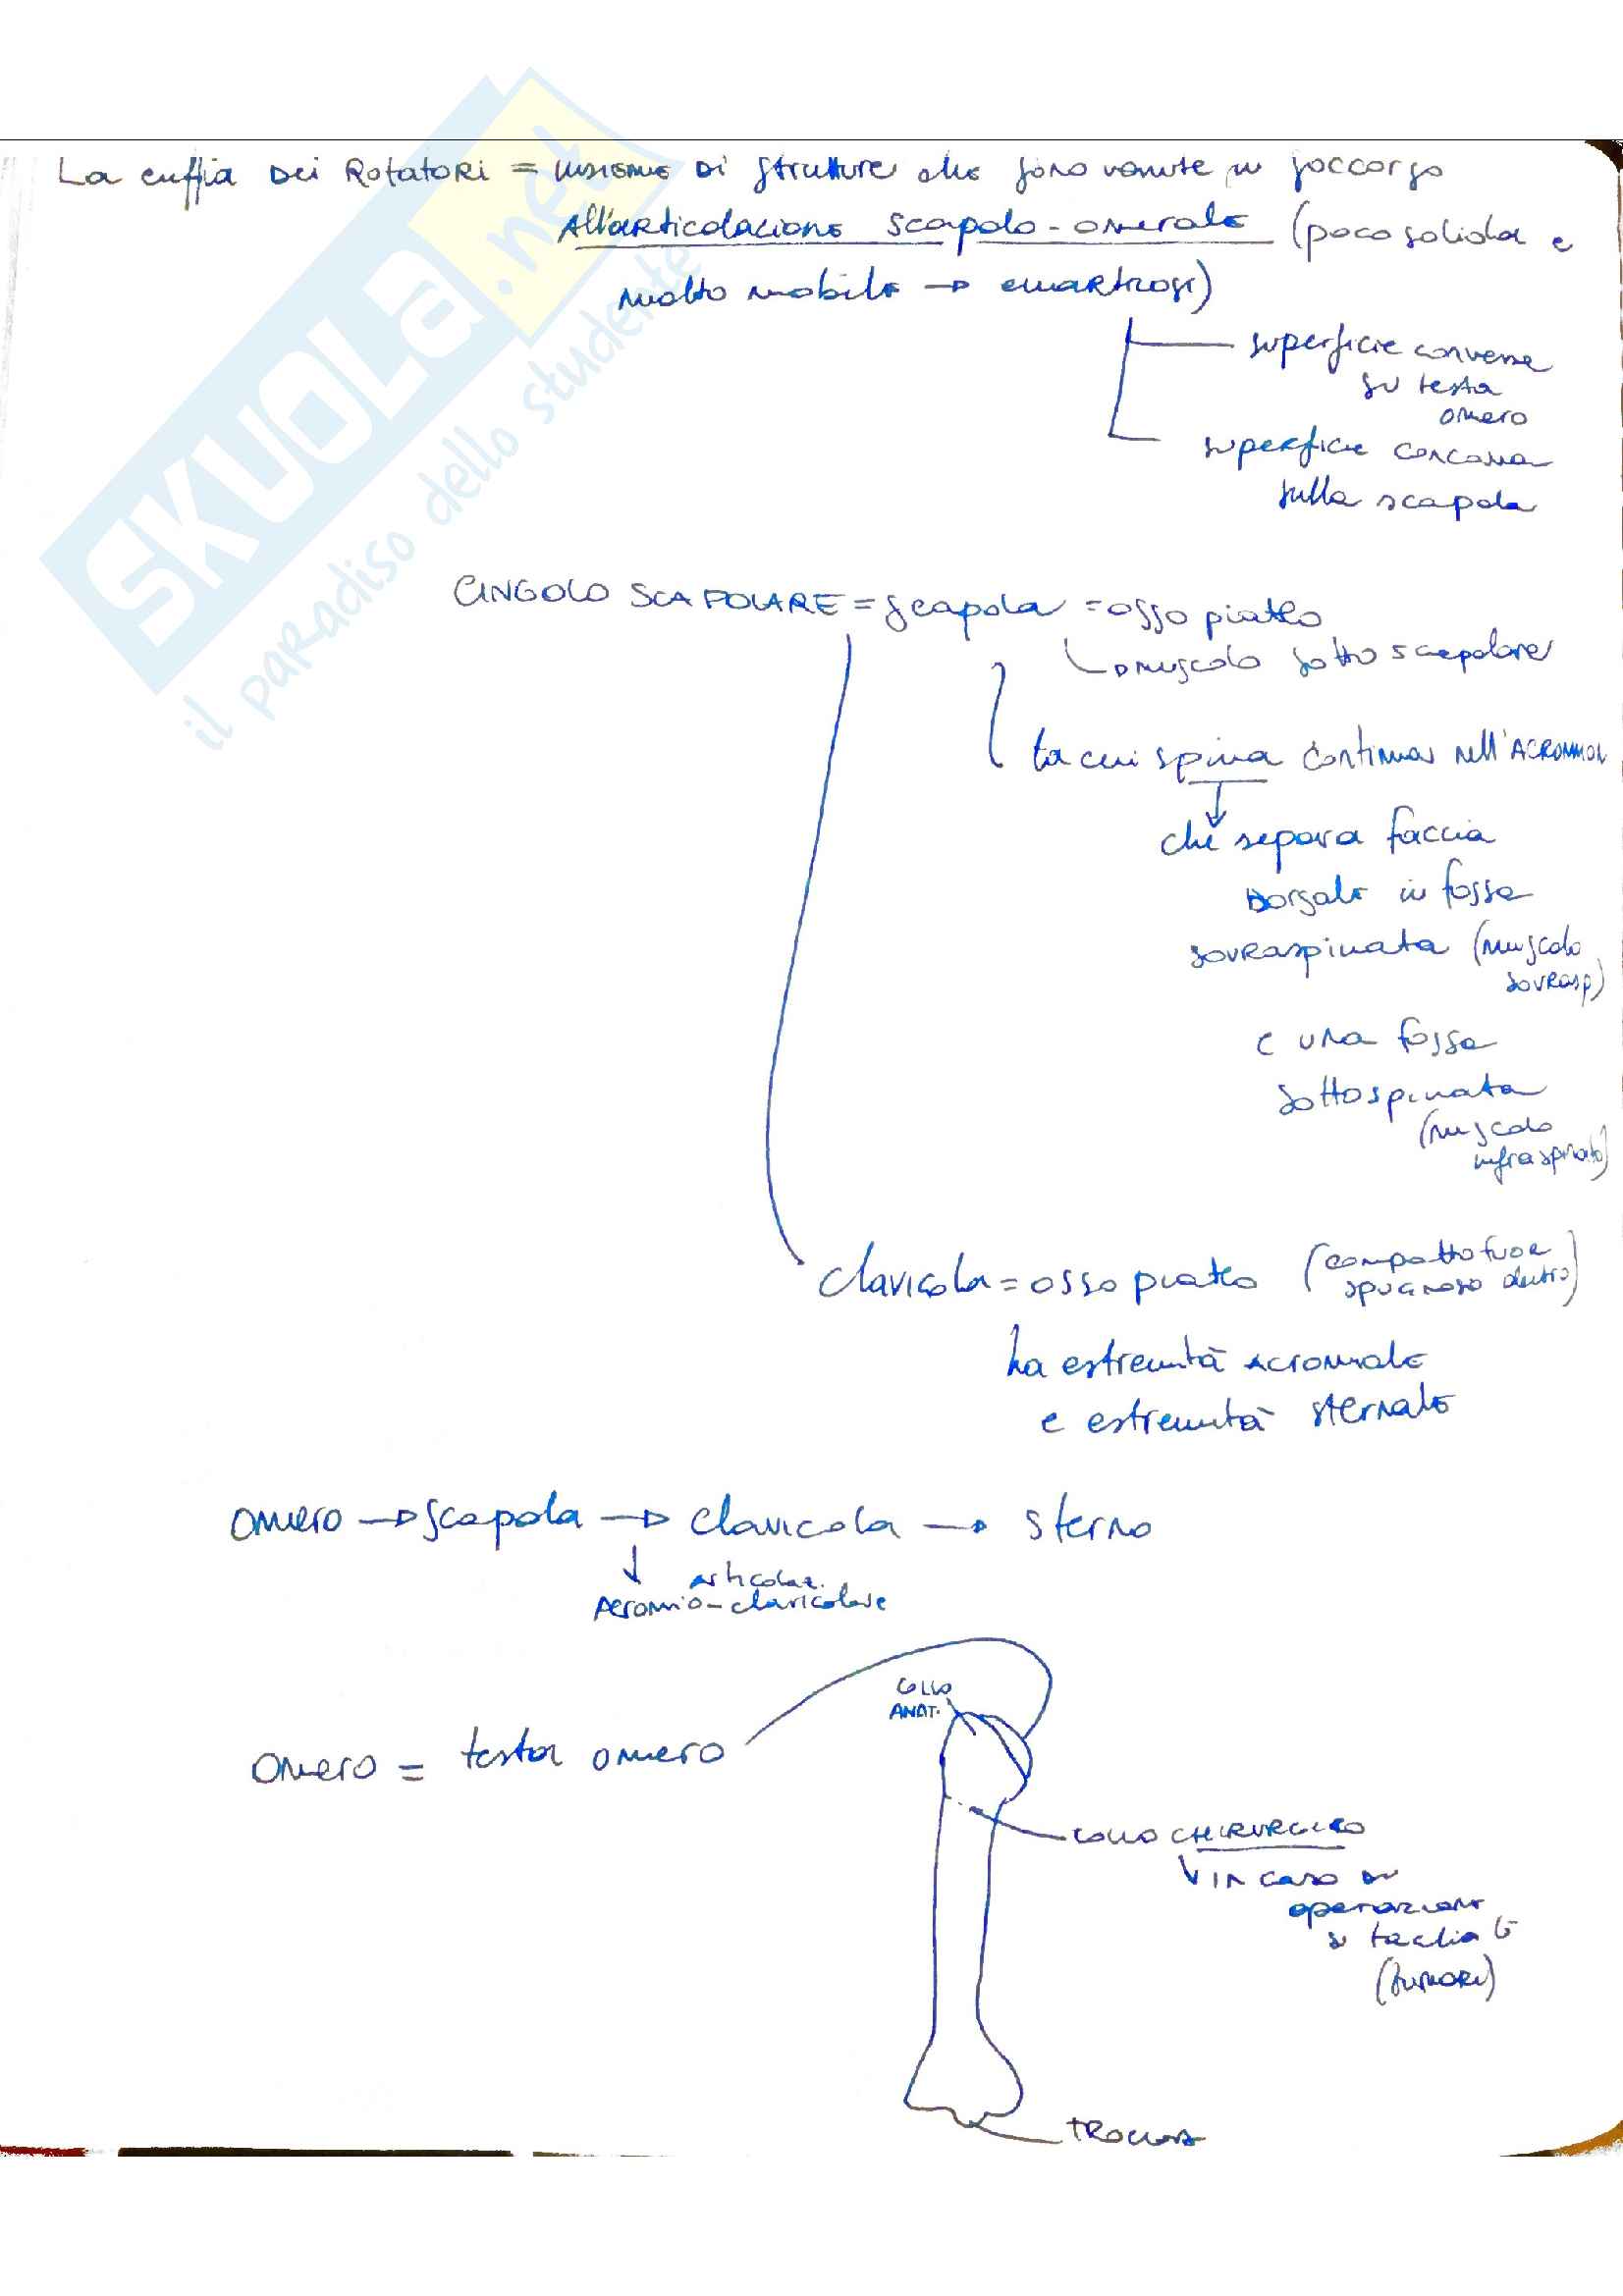 La cuffia Dei Rotatori = insieme Di strutture che sono venute in soccorso
All'articolazione scapolo-omerale (poco solida e
molto mobile → enartrosi)
superficie convessa
su testa
omero
superficie concava
sulla scapola
CINGOLO SCAPOLARE = scapola = osso piatto
→ muscolo sottoscapolare
la cui spina continua nell'ACROMION
che separa faccia
Dorsale in fossa
sovraspinata (muscolo
sovrasp)
e una fossa
sottospinata
(muscolo
infraspinato)
clavicola = osso piatto (compatto fuori
spugnoso dentro)
ha estremità acromiale
e estremità sternale
omero → scapola → clavicola → sterno
↓ articolaz.
Acromio-clavicolare
COLLO
ANAT.
Omero = testa omero
COLLO CHIRURGICO
↳ in caso di
operazione
si taglia lì
(tumori)
TROCLEA
SKUOLA.net
il paradiso dello studente